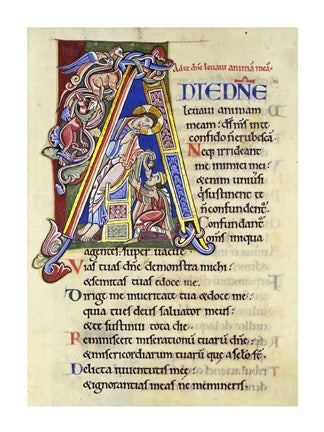 Ad te dñe leuaui animā meā.
A DTEDÑE
leuaui animam
meam: dſ mſ in te
confido n̄ erubeſcā.
Neq; irrideant
me inimici mei:
&enim uniuſi
q̇ſuſtinent te
n̄ confundent̄.
Confundant̄
omſ iniqua
agenteſ: ſuper uacue.
Viaſ tuaſ dñe demonſtra michi:
&ſemitaſ tuaſ edoce me.
Dirige me inueritate tua &doce me:
quia tueſ deuſ ſaluator meuſ:
&te ſuſtinui tota die.
Reminiſcere miſerationū tuarū dñe:
&miſericordiarum tuarū que aſclo ſt̄.
Delicta iuuentutiſ meę:
&ignorantiaſ meaſ ne memineriſ.